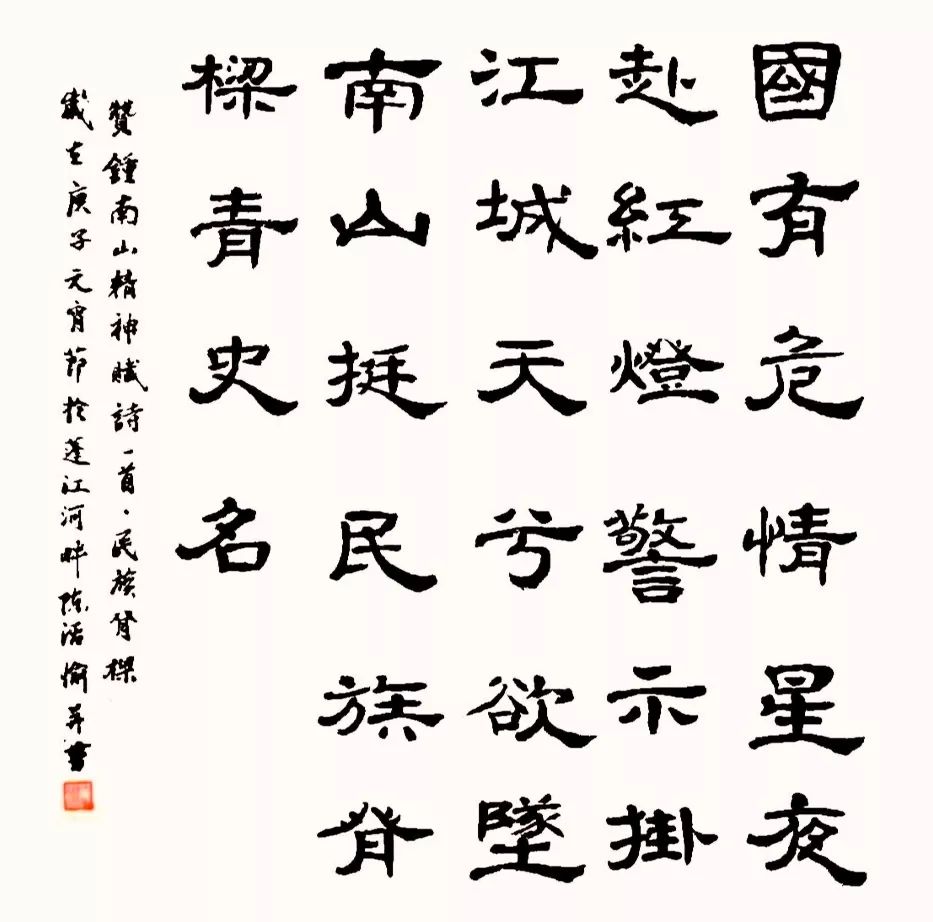 國有危情星夜
赴紅燈警示掛
江城天兮欲墜
南山挺民族脊
樑青史名
贊鍾南山精神賦詩一首·民族脊樑
歲在庚子元宵節於蓬江河畔陳愉并書